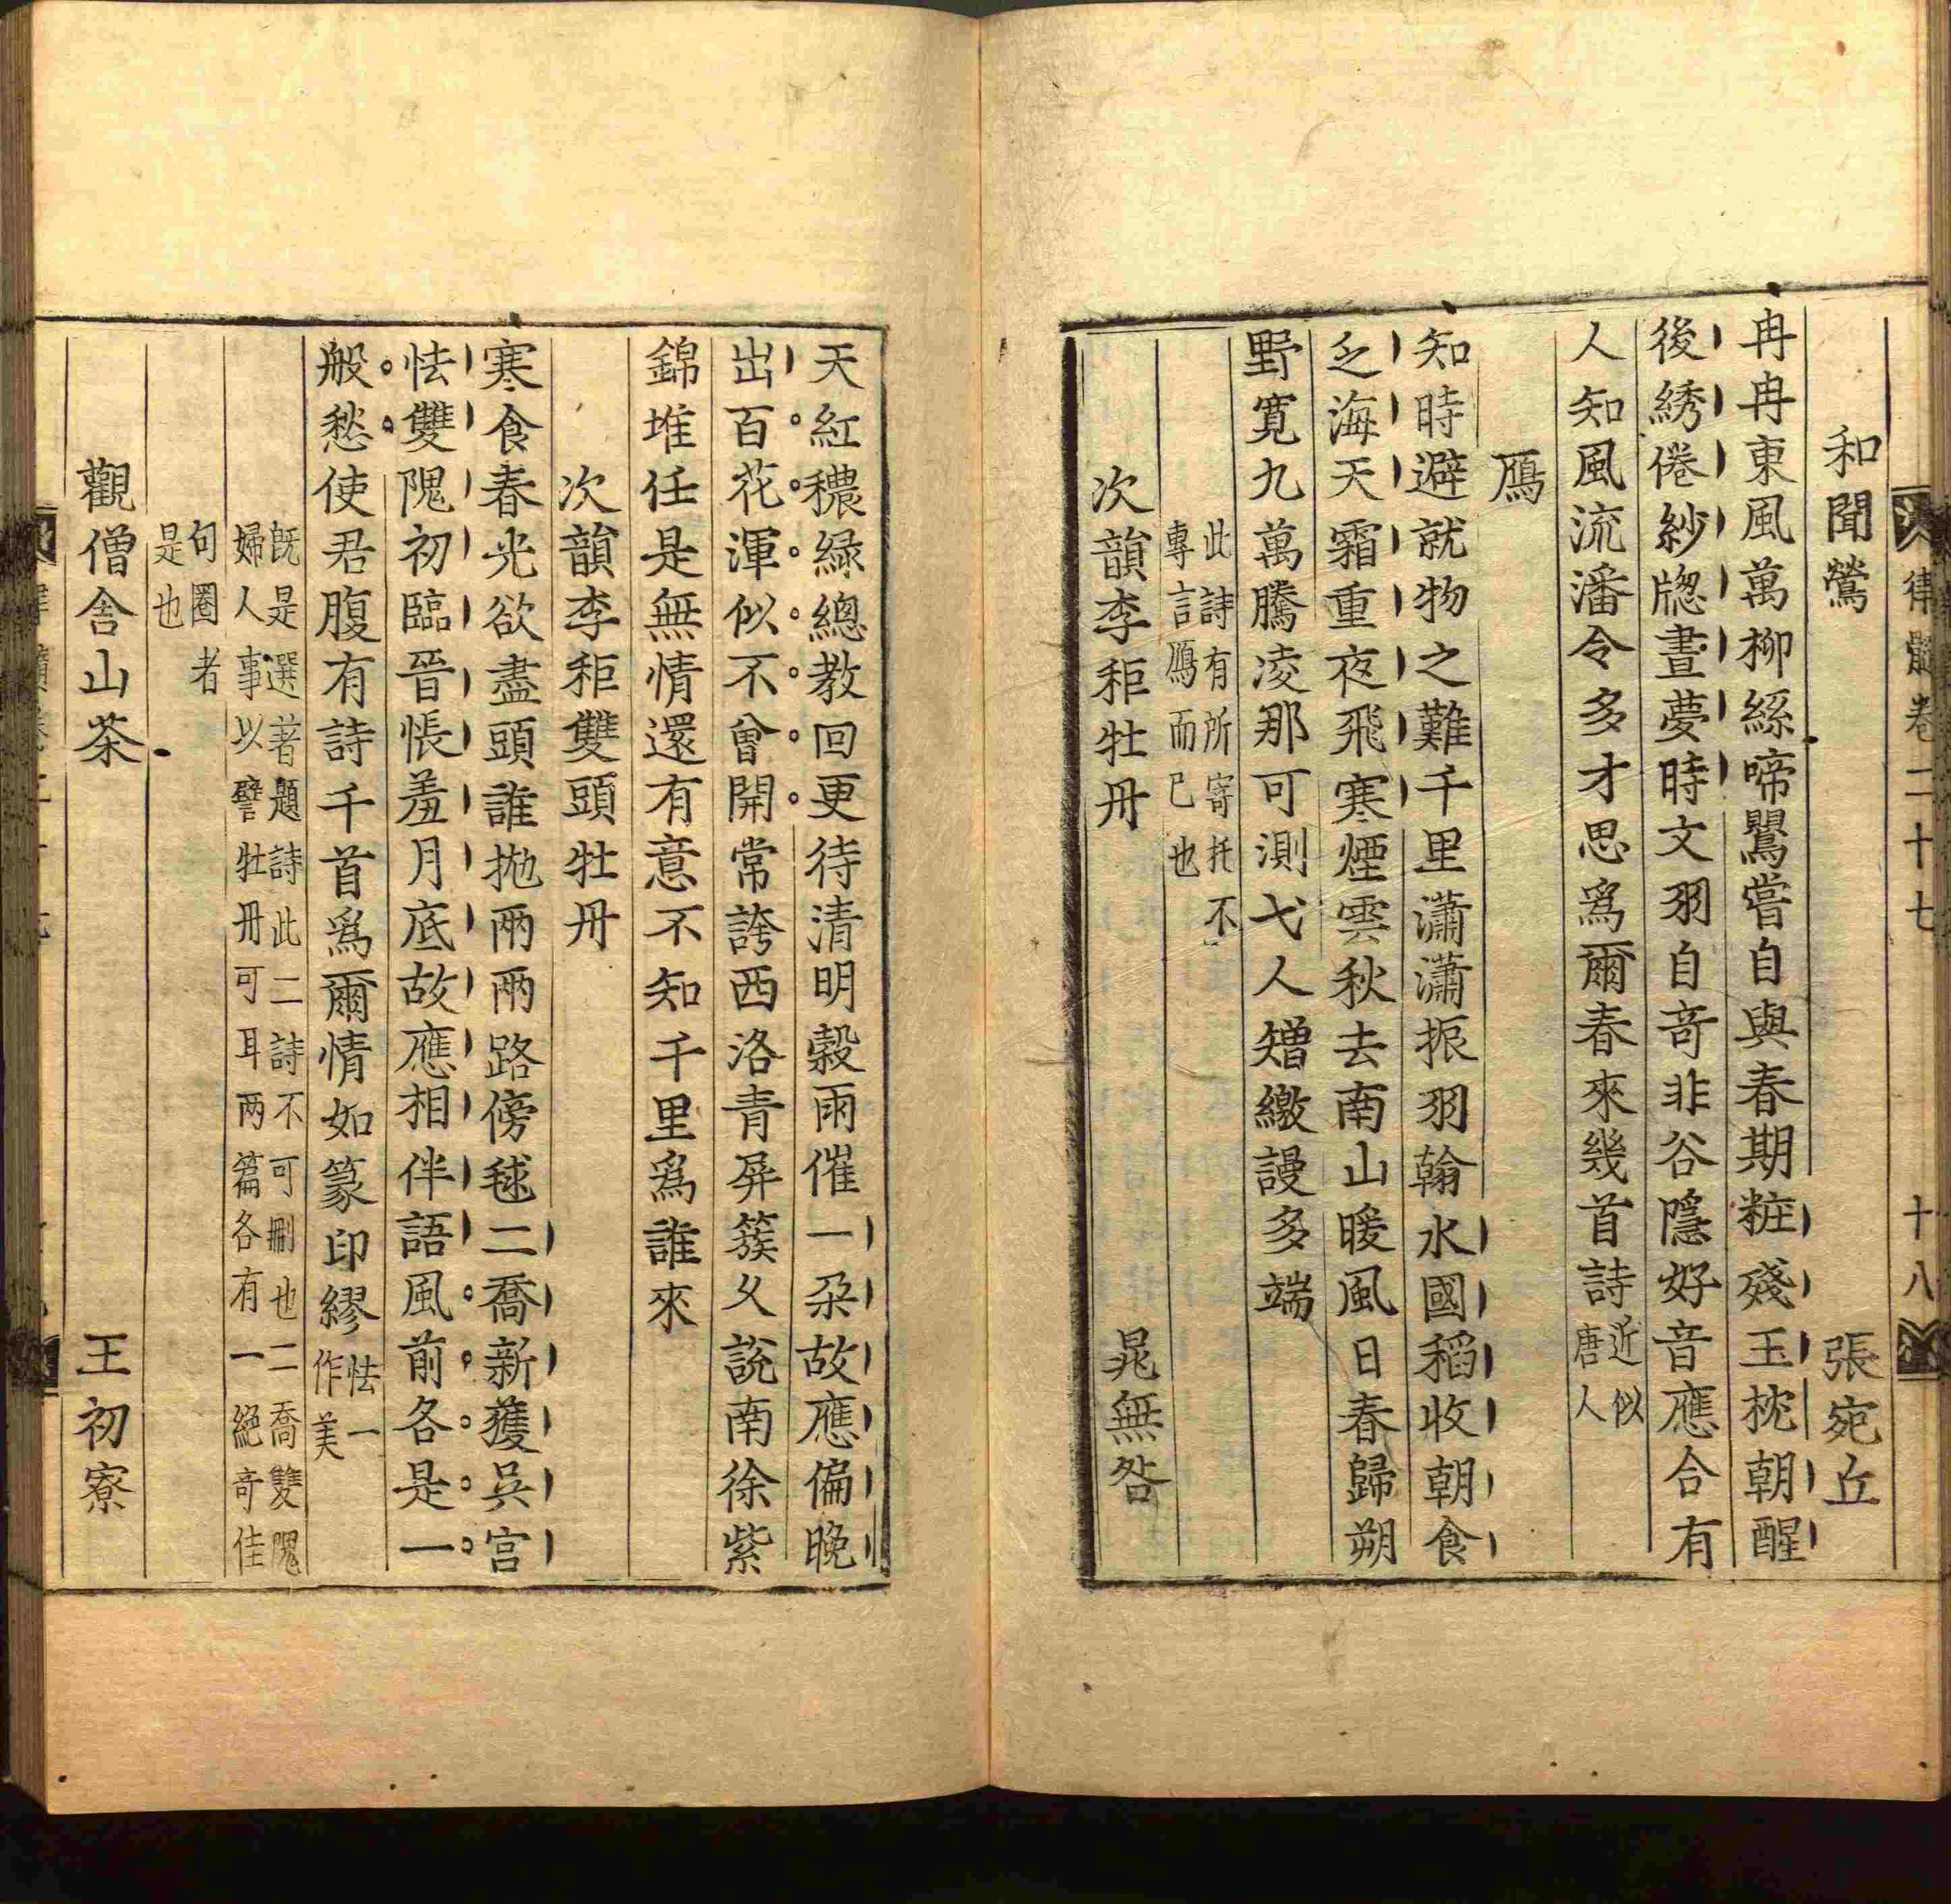 律髓卷二十七　十八
和聞鶯　張宛丘
冉冉東風萬柳絲啼鸎嘗自與春期粧殘玉枕朝醒
後綉倦紗牎晝夢時文羽自竒非谷隱好音應合有
人知風流潘令多才思爲爾春來幾首詩近似
唐人
鴈
知時避就物之難千里瀟瀟振羽翰水國稻收朝食
乏海天霜重夜飛寒煙雲秋去南山暖風日春歸朔
野寛九萬騰凌那可測弋人矰繳謾多端
此詩有所寄托不
專言鴈而已也
次韻李秬牡丹　晁無咎
天紅穠綠總教回更待清明榖雨催一朶故應偏晚
出百花渾似不曾開常誇西洛青屏簇乆説南徐紫
錦堆任是無情還有意不知千里爲誰來
次韻李秬雙頭牡丹
寒食春光欲盡頭誰抛兩兩路傍毬二喬新獲吳宫
怯雙隗初臨晉帳羞月底故應相伴語風前各是一
般愁使君腹有詩千首爲爾情如篆印繆怯一
作美
既是選著題詩此二詩不可刪也二喬雙隗
婦人事以譬牡丹可耳两篇各有一絕竒佳
句圈者
是也
觀僧舍山茶　王初寮